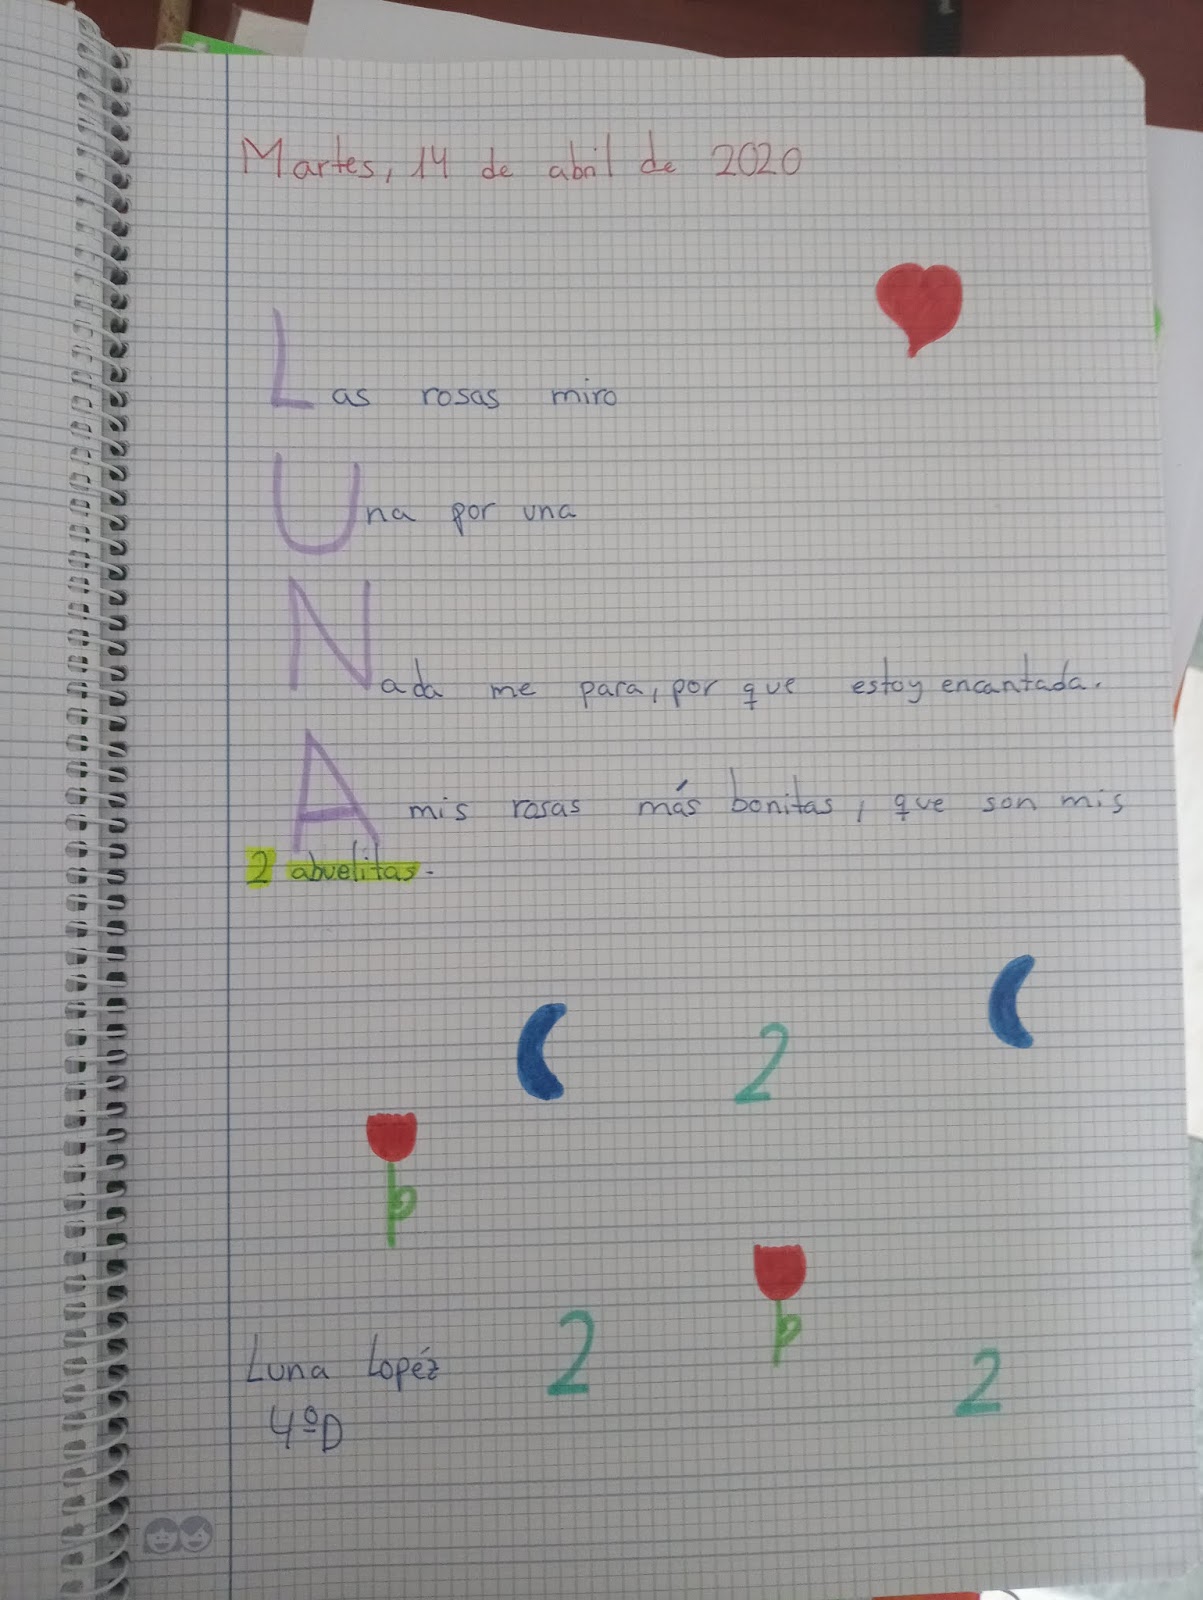 Martes, 14 de abril de 2020
Las rosas miro
Una por una
Nada me para, por que estoy encantada.
A mis rosas más bonitas, que son mis
2 abuelitas.
2
2
2
Luna Lopéz
4ºD